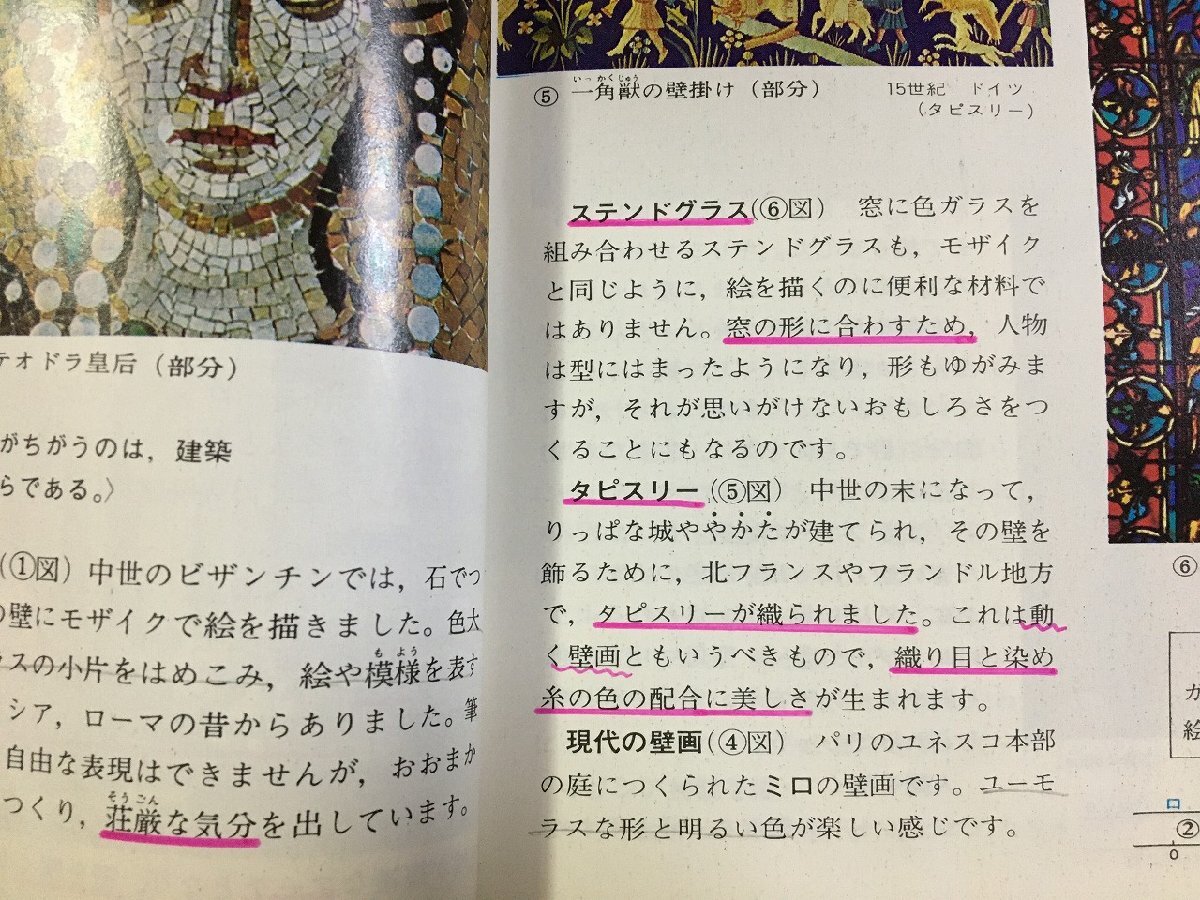 テオドラ皇后（部分）
がちがうのは，建築
らである。〉
(①図) 中世のビザンチンでは，石でつ
の壁にモザイクで絵を描きました。色大
スの小片をはめこみ，絵や模様を表す
もよう
シア，ローマの昔からありました。筆
自由な表現はできませんが，おおまか
つくり，荘厳な気分を出しています。
そうごん
いっかくじゅう
⑤ 一角獣の壁掛け（部分） 15世紀 ドイツ
（タピスリー）
ステンドグラス(⑥図) 窓に色ガラスを
組み合わせるステンドグラスも，モザイク
と同じように，絵を描くのに便利な材料で
はありません。窓の形に合わすため，人物
は型にはまったようになり，形もゆがみま
すが，それが思いがけないおもしろさをつ
くることにもなるのです。
タピスリー(⑤図) 中世の末になって，
りっぱな城ややかたが建てられ，その壁を
飾るために，北フランスやフランドル地方
で，タピスリーが織られました。これは動
く壁画ともいうべきもので，織り目と染め
糸の色の配合に美しさが生まれます。
現代の壁画(④図) パリのユネスコ本部
の庭につくられたミロの壁画です。ユーモ
ラスな形と明るい色が楽しい感じです。
⑥
絵
②
0